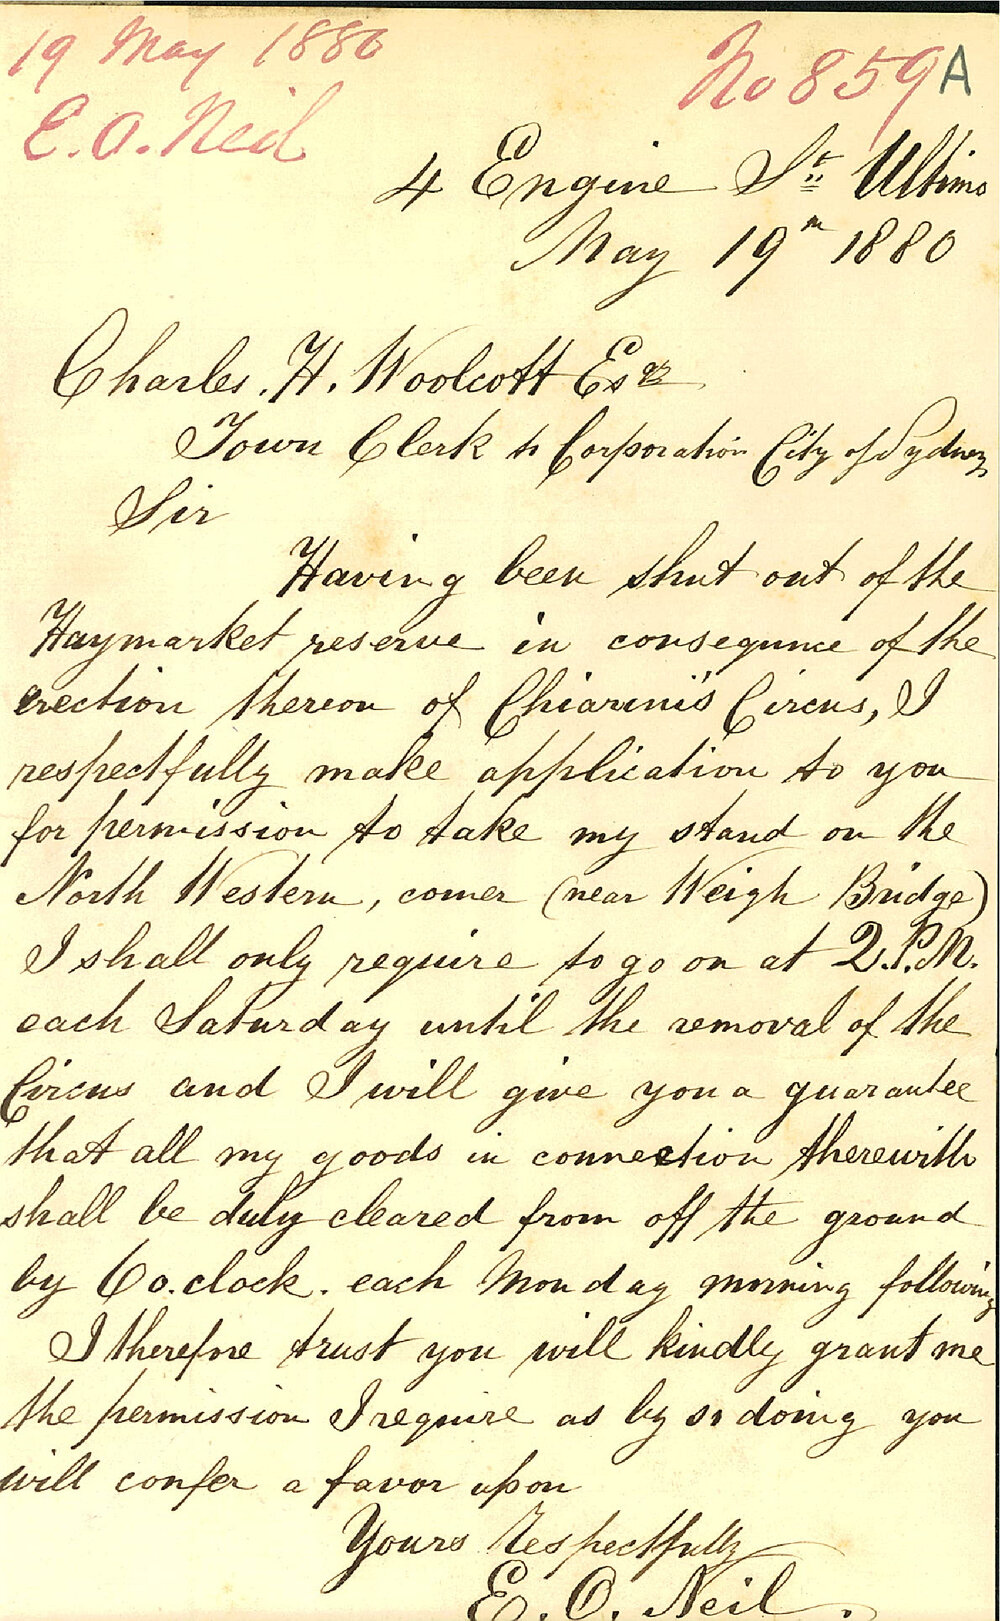 19 May 1880
No 859A
E. O. Neil
4 Engine St Ultimo
May 19th 1880
Charles. H. Woolcott Esqr
Town Clerk to Corporation City of Sydney
Sir
Having been shut out of the
Haymarket reserve in consequnce of the
erection thereon of Chiarini's Circus, I
respectfully make application to you
for permission to take my stand on the
North Western, corner (near Weigh Bridge)
I shall only require to go on at 2.P.M.
each Saturday until the removal of the
Circus and I will give you a guarantee
that all my goods in connection therewith
shall be duly cleared from off the ground
by 6 o.clock. each Monday morning following
I therefore trust you will kindly grant me
the permission I require as by so doing you
will confer a favor upon
Yours respectfully
E. O. Neil.